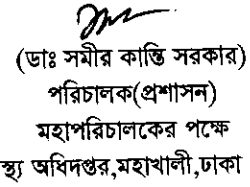 (ডাঃ সমীর কান্তি সরকার)
পরিচালক(প্রশাসন)
মহাপরিচালকের পক্ষে
স্থ্য অধিদপ্তর,মহাখালী,ঢাকা